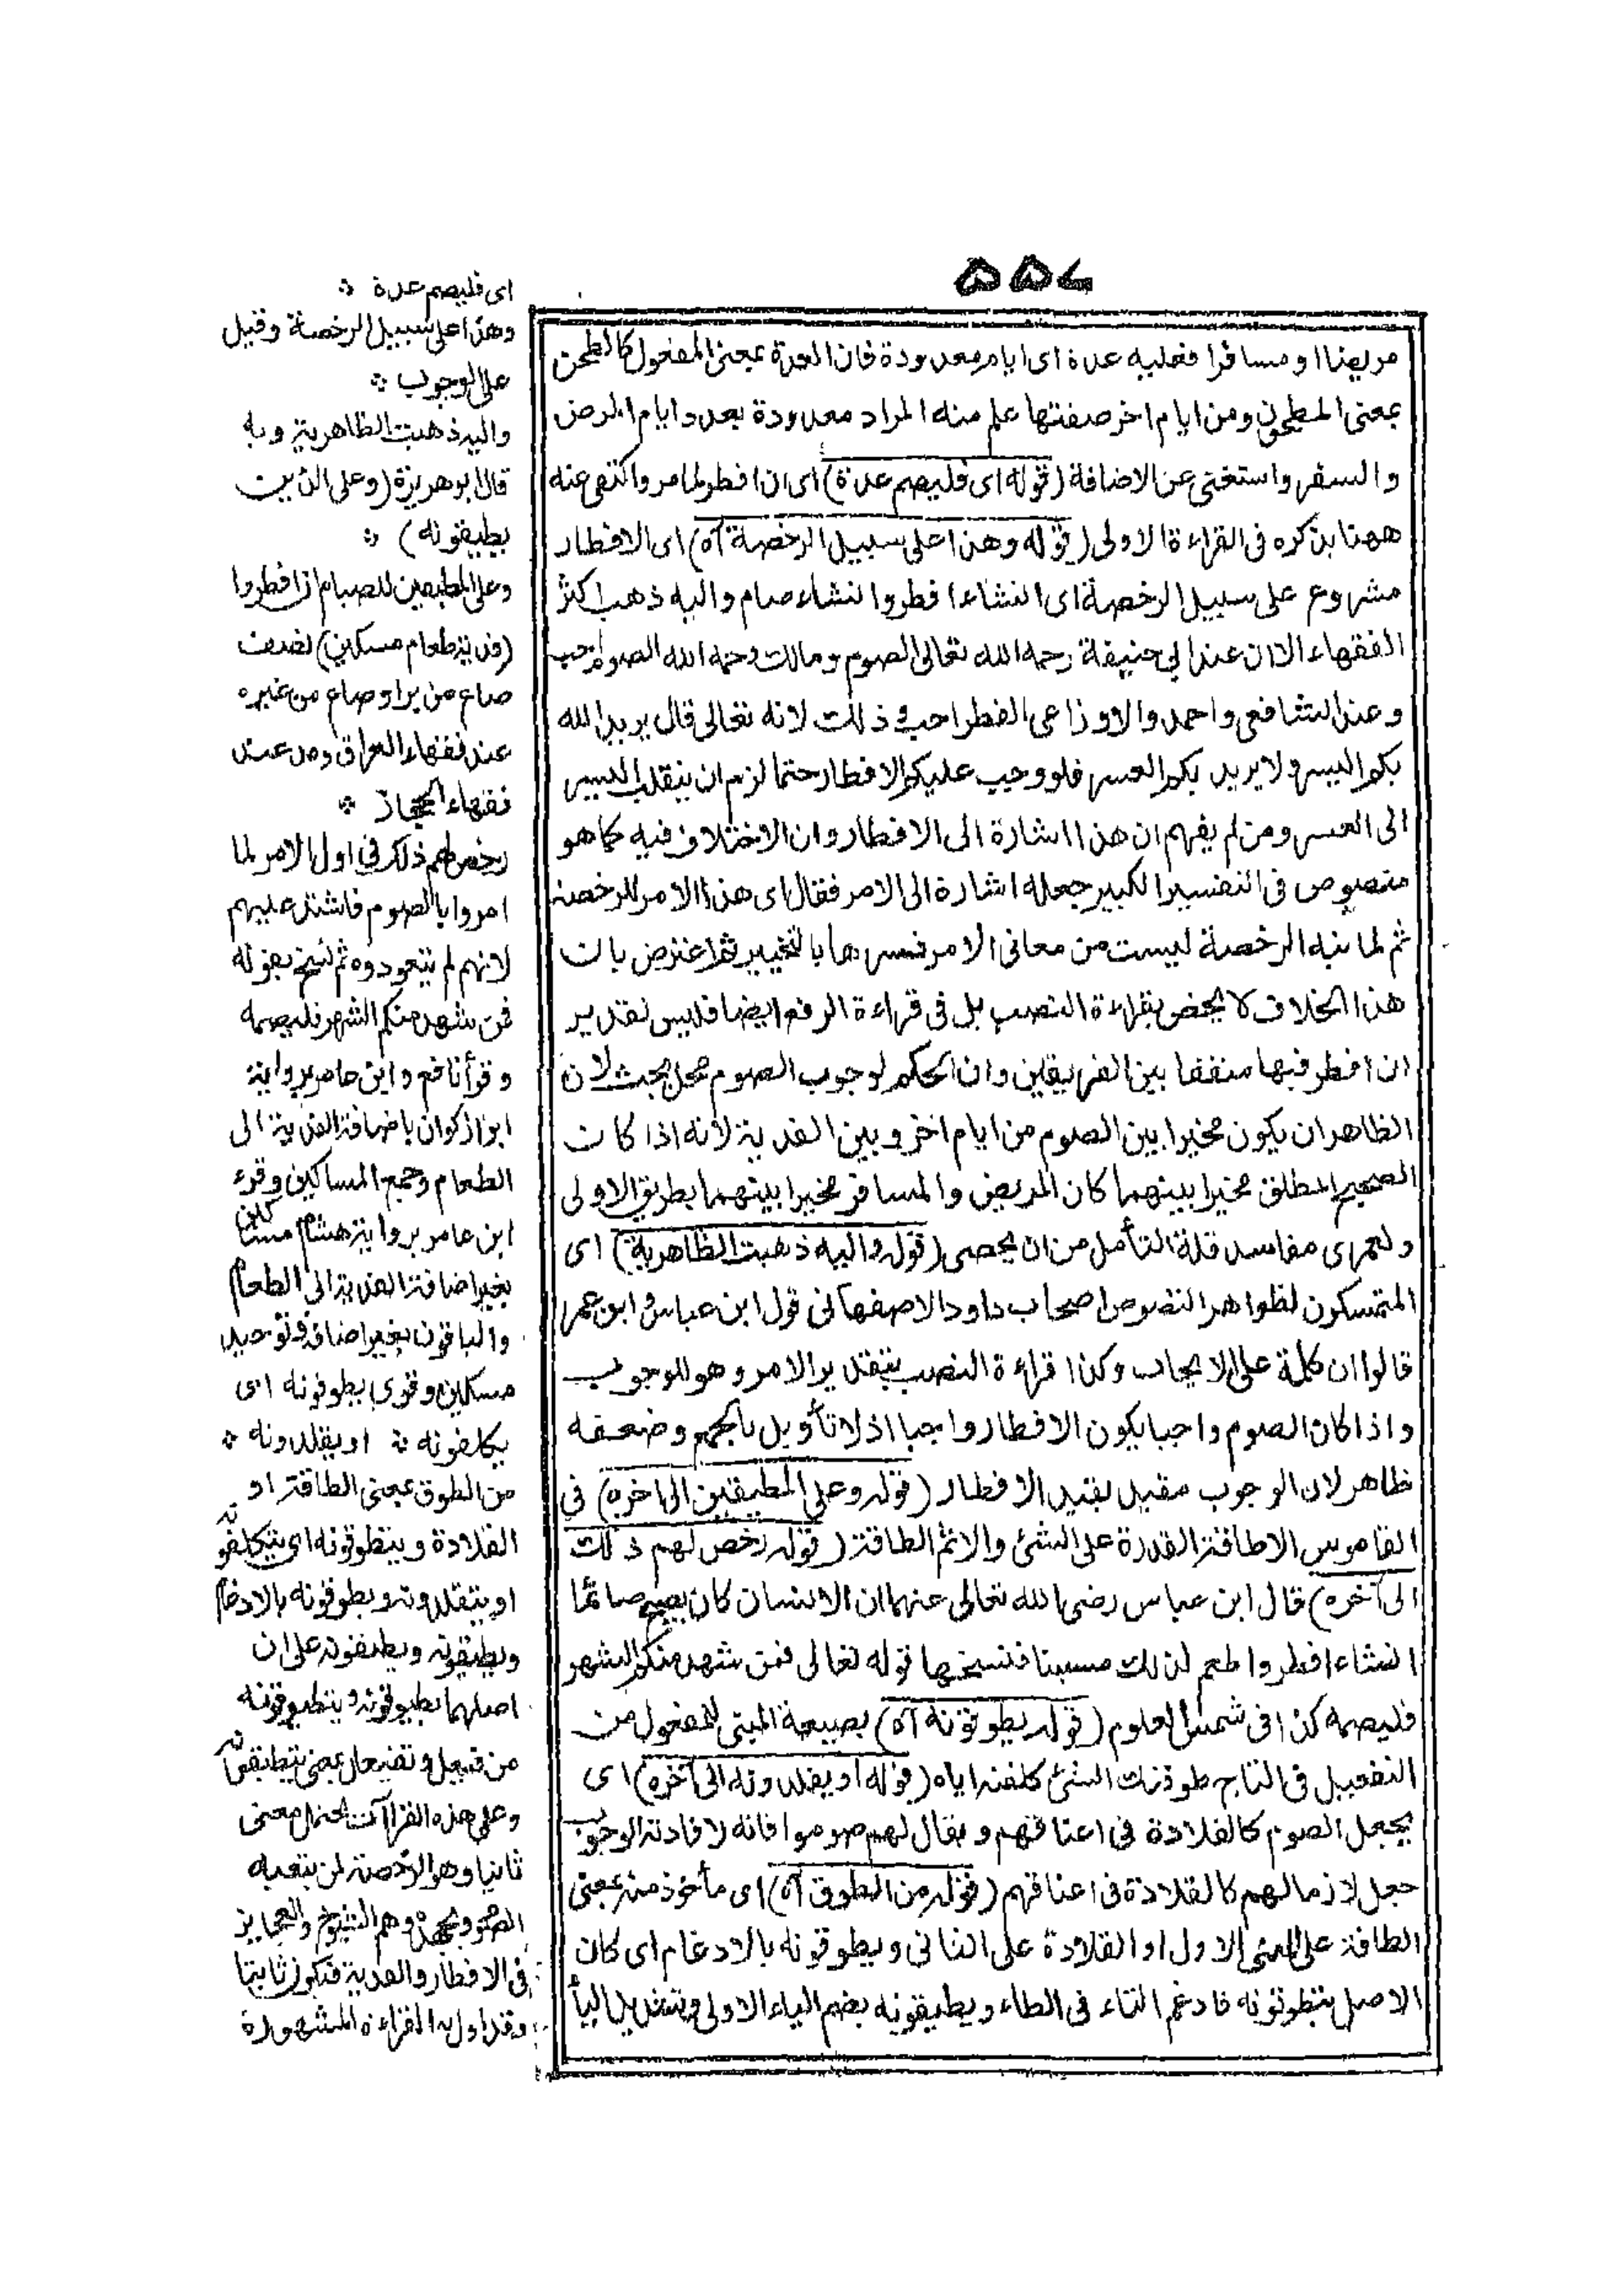 ۵۵۷
مريضا او مسافرا فعليه عدة اى ايام معدودة فان العدة بمعنى المفعول كالطحن
بمعنى المطحون ومن ايام اخر صفتها علم منه المراد معدودة بعدد ايام المرض
والسفر واستغنى عن الاضافة (قوله اى فليصم عدة) اى ان افطر لمامر واكتفى عنه
ههنا بذكره فى القراءة الاولى (قوله وهذا على سبيل الرخصة آه) اى الافطار
مشروع على سبيل الرخصة اى ان شاء افطر وان شاء صام واليه ذهب اكثر
الفقهاء الا ان عند ابى حنيفة رحمه الله تعالى الصوم ومالك رحمه الله الصوم احب
وعند الشافعى واحمد والاوزاعى الفطر احب وذلك لانه تعالى قال يريد الله
بكم اليسر ولا يريد بكم العسر فلو وجب عليكم الافطار حتما لزم ان ينقلب اليسر
الى العسر ومن لم يفهم ان هذا اشارة الى الافطار وان الاختلاف فيه كما هو
منصوص فى التفسير الكبير جعله اشارة الى الامر فقال اى هذا الامر للرخصة
ثم لما نبه الرخصة ليست من معانى الامر فسرها بالتخيير ثم اعترض بان
هذا الخلاف لا يخص بقراءة النصب بل فى قراءة الرفع ايضا فليس تقدير
ان افطر فيها متفقا بين الفريقين وان الحكم لوجوب الصوم محل بحث لان
الظاهر ان يكون مخيرا بين الصوم من ايام اخر وبين الفدية لانه اذا كان
الصحيح المطلق مخيرا بينهما كان المريض والمسافر مخيرا بينهما بطريق الاولى
ولعمرى مفاسد قلة التأمل من ان يحصى (قوله واليه ذهبت الظاهرية) اى
المتمسكون لظواهر النصوص اصحاب داود الاصفهانى قول ابن عباس وابن عمر
قالوا ان كلمة على للايجاب وكذا قراءة النصب بتقدير الامر وهو للوجوب
واذا كان الصوم واجبا يكون الافطار واجبا اذ لا تأويل بالجمع وضعفه
ظاهر لان الوجوب مقيد بقيد الافطار (قوله وعلى المطيقين الى اخره) فى
القاموس الاطاقة القدرة على الشئ والاثم الطاقة (قوله رخص لهم ذلك
الى آخره) قال ابن عباس رضى الله تعالى عنهما ان الانسان كان يصبح صائما
ان شاء افطر واطعم لذلك مسينا فنسخها قوله تعالى فمن شهد منكم الشهر
فليصمه كذا فى شمس العلوم (قوله يطوقونه آه) بصيغة المبنى للمفعول من
التفعيل فى التاج طوقتك الشئ كلفته اياه (قوله او يقلدونه الى آخره) اى
يجعل الصوم كالقلادة فى اعناقهم ويقال لهم صوموا فانه لافادته الوجوب
جعل لازما لهم كالقلادة فى اعناقهم (قوله من الطوق آه) اى مأخوذ منه بمعنى
الطاقة على المعنى الاول او القلادة على الثانى ويطوقونه بالادغام اى كان
الاصل يتطوقونه فادغم التاء فى الطاء ويطيقونه بضم الياء الاولى وتشديد اليأ
اى فليصم عدة
وهذا على سبيل الرخصة وقيل
على الوجوب
واليه ذهبت الظاهرية وبه
قال ابو هريرة (وعلى الذين
يطيقونه)
وعلى المطيقين للصيام ان افطروا
(فدية طعام مسكين) نصف
صاع من بر او صاع من غيره
عند فقهاء العراق ومد عند
فقهاء الحجاز
رخص لهم ذلك فى اول الامر لما
امروا بالصوم فاشتد عليهم
لانهم لم يتعودوه ثم نسخ بقوله
فمن شهد منكم الشهر فليصمه
وقرأ نافع وابن عامر برواية
ابن ذكوان باضافة الفدية الى
الطعام وجمع المساكين وقرء
ابن عامر برواية هشام مساكين
بغير اضافة الفدية الى الطعام
والباقون بغير اضافة وتوحيد
مسكين وقرئ يطوقونه اى
يكلفونه او يقلدونه
من الطوق بمعنى الطاقة او
القلادة ويتطوقونه اى يتكلفونه
او يتقلدونه ويطوقونه بالادغام
ويطيقونه ويطيقونه على ان
اصلهما يطيوقونه ويتطيوقونه
من فيعل وتفيعل بمعنى يتطيقونه
وعلى هذه القراآت يحتمل معنى
ثانيا وهو الرخصة لمن يتعبه
الصوم ويجهده وهم الشيوخ والعجايز
فى الافطار والفدية فيكون ثابتا
وقد اول به القراءة المشهورة